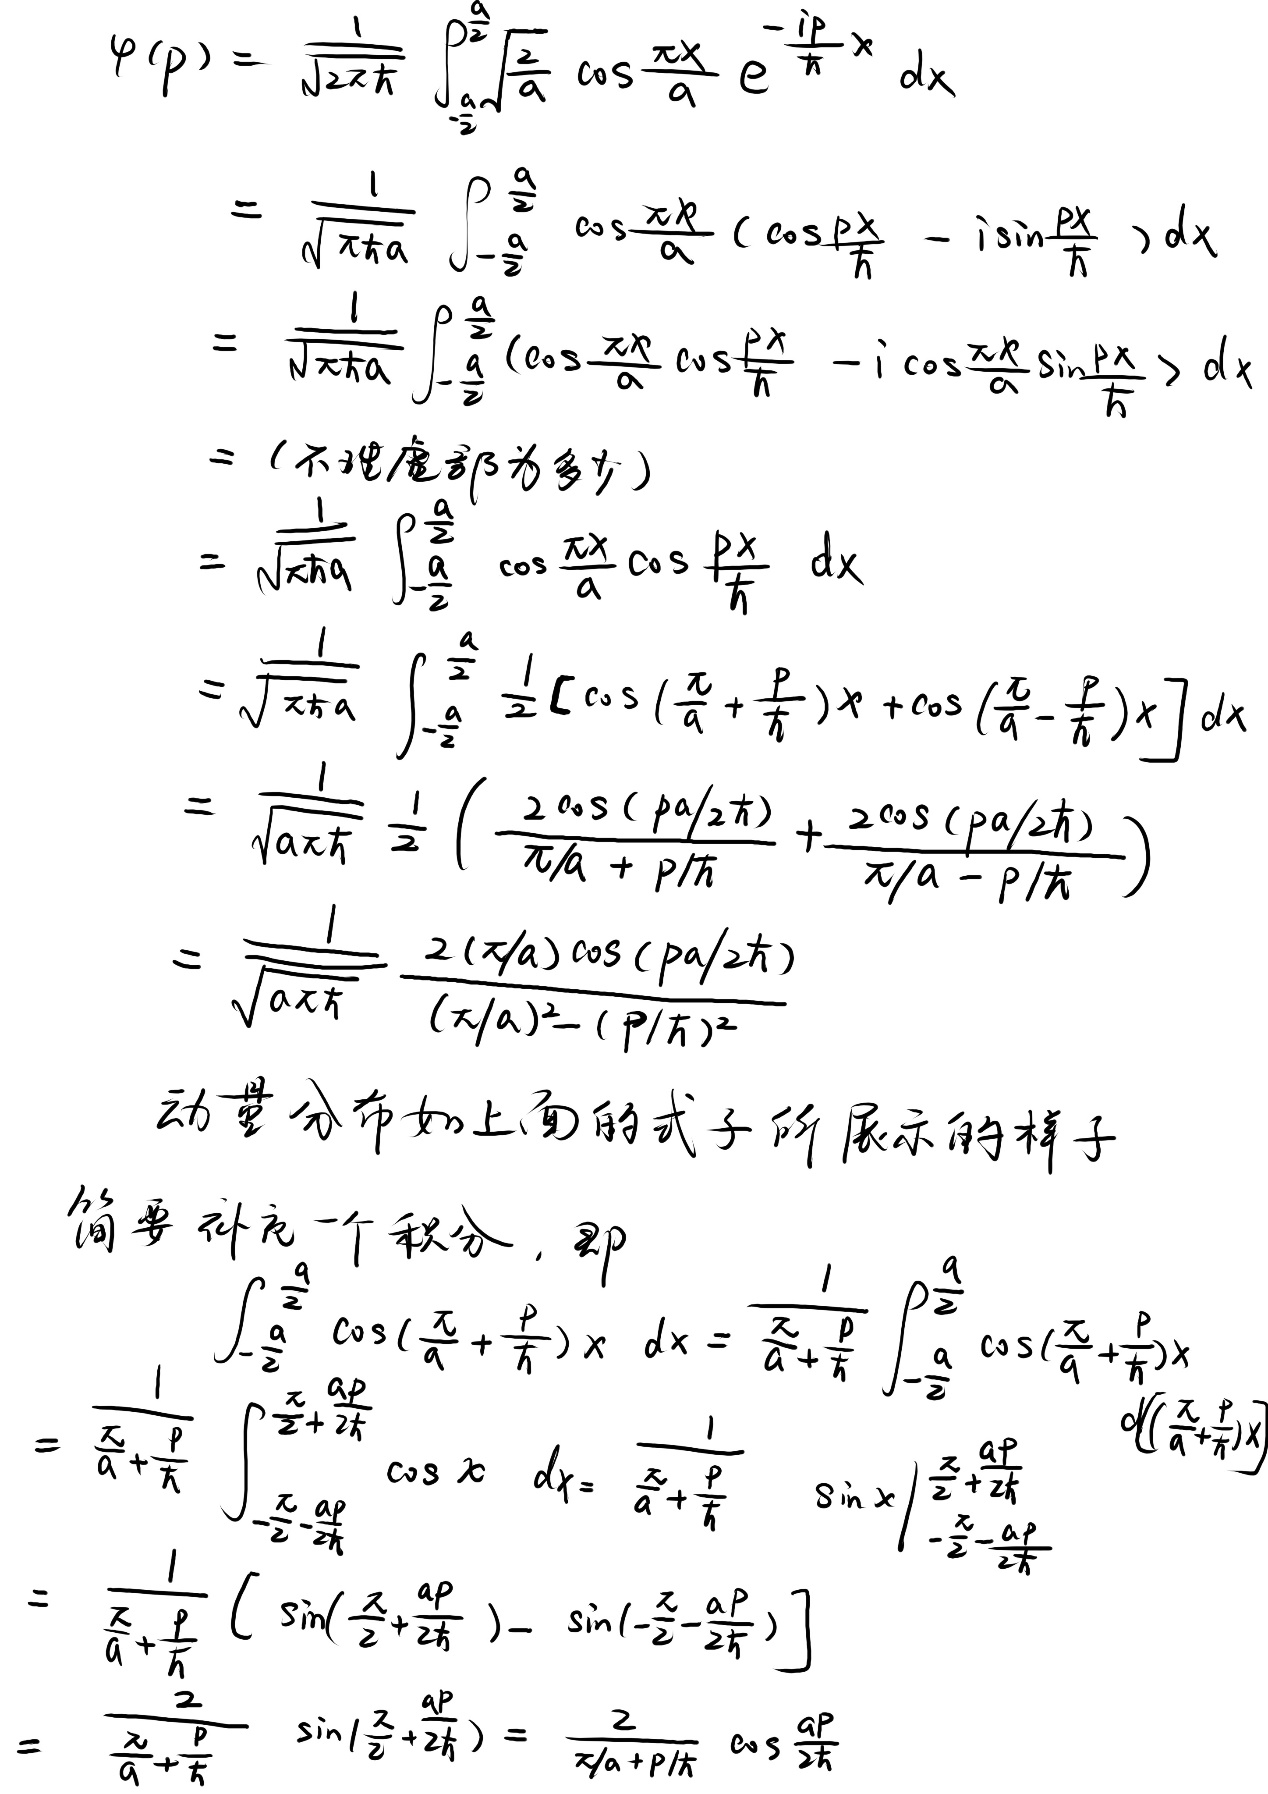 φ(p) = 1/√(2πħ) ∫_{-a/2}^{a/2} √(2/a) cos πx/a e^{-ip/ħ x} dx
= 1/√(πħa) ∫_{-a/2}^{a/2} cos πx/a (cos px/ħ - i sin px/ħ) dx
= 1/√(πħa) ∫_{-a/2}^{a/2} (cos πx/a cos px/ħ - i cos πx/a sin px/ħ) dx
= (不理虚部为多少)
= 1/√(πħa) ∫_{-a/2}^{a/2} cos πx/a cos px/ħ dx
= 1/√(πħa) ∫_{-a/2}^{a/2} 1/2 [cos (π/a + p/ħ)x + cos (π/a - p/ħ)x] dx
= 1/√(aπħ) 1/2 (2cos(pa/2ħ)/(π/a + p/ħ) + 2cos(pa/2ħ)/(π/a - p/ħ))
= 1/√(aπħ) 2(π/a)cos(pa/2ħ)/((π/a)² - (p/ħ)²)
动量分布如上面的式子所展示的样子
简要补充一个积分，即
∫_{-a/2}^{a/2} cos(π/a + p/ħ)x dx = 1/(π/a + p/ħ) ∫_{-a/2}^{a/2} cos(π/a + p/ħ)x d[(π/a + p/ħ)x]
= 1/(π/a + p/ħ) ∫_{-π/2 - ap/2ħ}^{π/2 + ap/2ħ} cos x dx = 1/(π/a + p/ħ) sin x |_{-π/2 - ap/2ħ}^{π/2 + ap/2ħ}
= 1/(π/a + p/ħ) [sin(π/2 + ap/2ħ) - sin(-π/2 - ap/2ħ)]
= 2/(π/a + p/ħ) sin(π/2 + ap/2ħ) = 2/(π/a + p/ħ) cos ap/2ħ